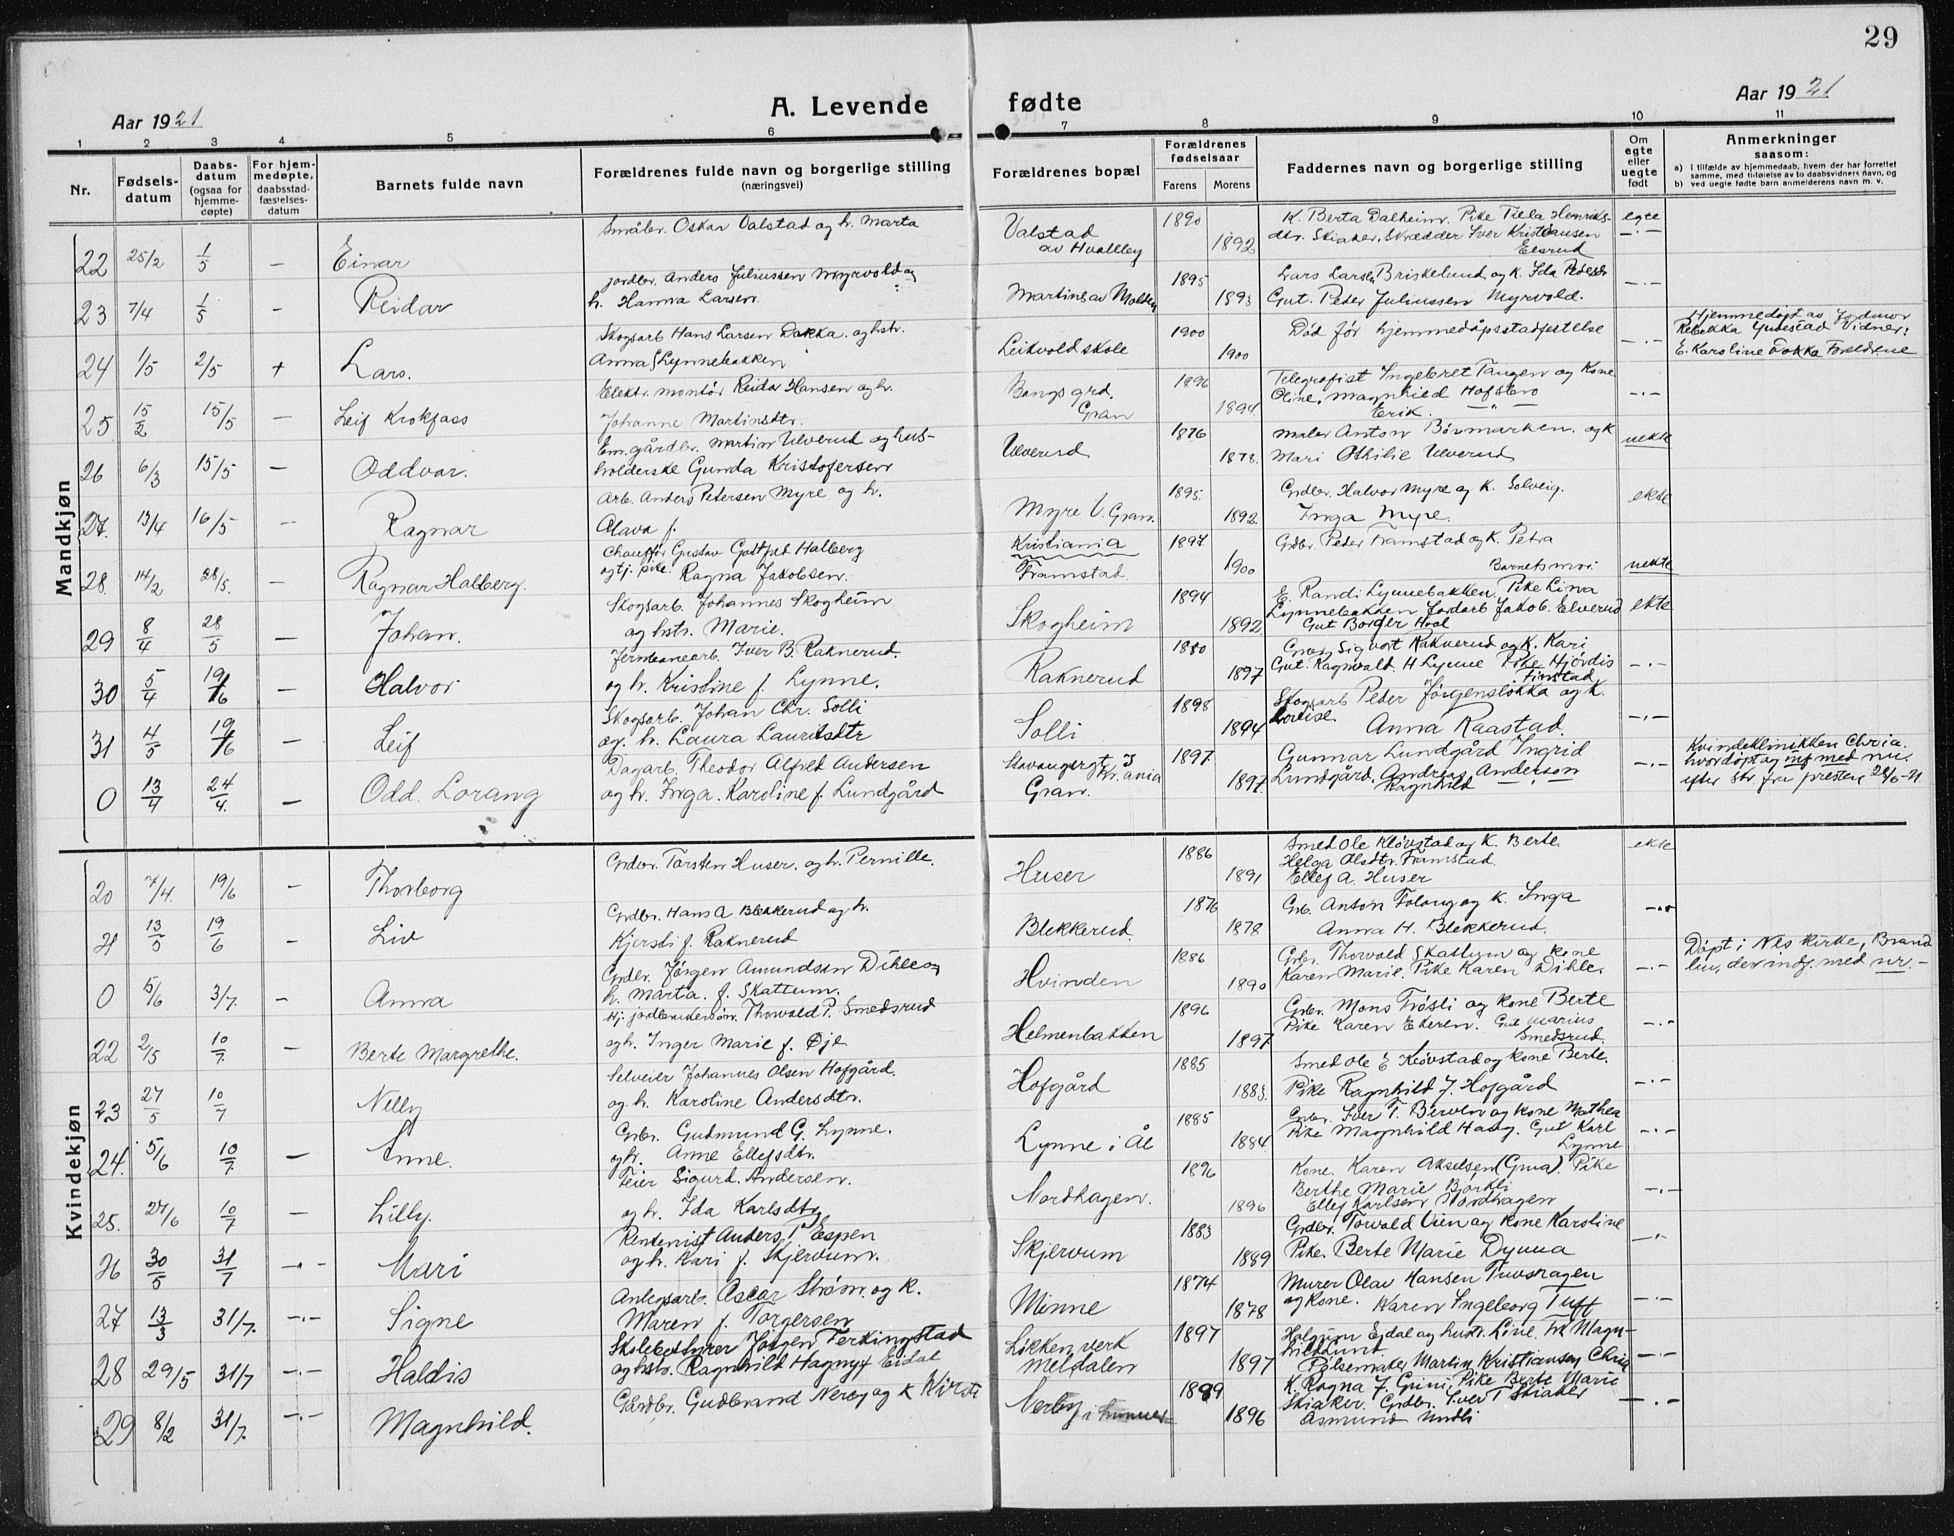 29
Aar 1921
A. Levende fødte
Aar 1921
1 2 3 4 5 6 7 8 9 10 11
Nr.
Fødsels-
datum
Daabs-
datum
(ogsaa for
hjemme-
døpte)
For hjem-
medøpte,
daabsstad-
fæstelses-
datum
Barnets fulde navn
Forældrenes fulde navn og borgerlige stilling
(næringsvei)
Forældrenes bopæl
Forældrenes
fødselsaar
Farens Morens
Faddernes navn og borgerlige stilling
Om
egte
eller
uegte
født
Anmerkninger
saasom:
a) i tilfælde av hjemmedaab, hvem der har forrettet
samme, med tilføielse av to daabsvidners navn, og
b) ved uegte fødte barn anmelderens navn m. v.
Mandkjøn
22 25/2 1/5 — Einar
Småbr. Oskar Valstad og h. Marta
Valstad
av Hvalbey
1890 1892
K. Berta Dalheim. Pike Tilla Henriks-
dtr. Skiaker, Skrædder Iver Kristiansen
Elsrud
egte
—·—
23 7/4 1/5 — Reidar
jordbr. Anders Juliussen Myrvold og
h. Hanna Larsen
Martines av Molden
1895 1893
Lars Larsen Briskelund og K. Ida
Gut. Peder Juliussen Myrvold.
—·—
24 1/5 2/5 + Lars.
Skogsarb Hans Larsen Dokka. og hstr.
Anna Lynnebakken
Leikvoldskole
1900 1900
Død før hjemmedåpsstadfestelse
—·—
Hjemmedøpt av Jordmor
Rebekka Vidner:
E. Karoline Dokka Foreldrene
25 15/2 15/5 — Leif Krokfass
Elektr. montør Reidar Hansen og h.
Johanne Martinsdtr.
Bangs grd.
Gran
1896 1894
Telegrafist Ingebret Tangen og Kone
Oline, Magnhild Hofsbro
Erik. —"—
—·—
26 6/3 15/5 — Oddvar.
Em. gårdbr. Martin Ulverud og hus-
holderske Gunda Kristofersen
Ulverud
1876 1878.
Maler Anton Bövmarken. og K
Mari Othilie Ulverud
uekte
27. 13/4 16/5 — Ragnar
Arb. Anders Petersen Myre og h.
Olava f.
Myre V. Gran.
1895. 1892.
Grdbr. Halvor Myre og K. Solveig.
Inga Myre.
ekte
28. 14/2 28/5. — Ragnar Halberg.
Chauffør Gustav Gottfred Halberg
og tj. pike. Ragna Jakobsen.
Kristiania
Framstad.
1897 1900
Grdbr. Peder Framstad og K. Petra
Barnets mor.
uekte
29 8/4 28/5 — Johan.
Skogsarb. Johannes Skogheim
og hstr. Marie.
Skogheim
1894 1892
E. Randi Lynnebakken, Pike Lina
Lynnebakken Jordarb Jakob. Elverud
Gut Borger Hval
ekte
30 5/4 19/6 — Halvor
Jernbanearb. Iver B. Raknerud.
og h. Kristine f. Lynne.
Raknerud
1880 1897
Grdbr. Sigvart Raknerud og K. Kari
Gut. Ragnvald H Lynne Pike Hjördis
Finstad
—·—
31 4/5 19/6 — Leif
Skogsarb. Johan Chr. Solli
og. h. Laura Lauritsdtr
Solli
1898 1894
Skogsarb Peder Jörgensløkka og K.
Lovise. Anna Raastad.
—·—
0 13/4 24/4. — Odd. Lorang
Dagarb. Theodor Alfred Andersen
og h. Inga. Karoline f. Lundgård
Stavangergt 3
Kr.ania
Gran.
1897 1897.
Gunnar Lundgård Ingrid
Lundgård. Andreas Anderson
Ragnhild —"—
—·—
Kvindeklinikken Chria.
hvor døpt og inf med nr.
efter Skr. fra presten 28/6-21.
Kvindekjøn
20 7/4. 19/6 — Thorborg
Grdbr. Torsten Huser. og h. Pernille.
Huser
1886 1891
Smed Ole Kløvstad og K. Berte
Helga Olsdtr. Framstad
Ellef A. Huser
ekte
21 13/5 19/6 — Liv
Grdbr. Hans A Blekkerud og h.
Kjersti f. Raknerud
Blekkerud.
1876 1878
Grb. Anton Folang og K. Inga
Anna H. Blekkerud.
—·—
0 5/6 3/7. — Anna
Grdbr. Jörgen Amundsen Dihle og
h. Marta. f. Skattum.
Hvinden
1886 1890
Grbr. Thorvald Skattum og kone
Karen Marie. Pike Karen Dihle.
—·—
Døpt i Nes kirke, Brand
bu, der indf. med nr. —
22 2/5 10/7. — Berte Margrethe.
Hj. jordbrukersøn. Thorvald P. Smedsrud
og h. Inger Marie f. Øje
Helmenbakken
1896 1897
Grbr. Mons Frösli og kone Berte
Pike Karen Ekeren. Gut Marius
Smedsrud.
—·—
23 27/5 10/7 Nelly
Selveier Johannes Olsen Hofgård.
og h. Karoline Andersdtr.
Hofgård
1885 1883.
Smed Ole E Kløvstad og kone Berte.
Pike Ragnhild J. Hofgård
—·—
24. 5/6 10/7 — Anne.
Grbr. Gudmund G. Lynne.
og h. Anne Ellefsdtr.
Lynne i Ål
1885 1884
Grbr. Iver T. Berven og kone Mathea
Pike Magnhild Haug. Gut Karl
Lynne
—·—
25. 27/6 10/7 — Lilly.
Feier Sigurd. Andersen.
og h. Ida Karlsdtr
Nordhagen.
1896 1896
Kone. Karen Akselsen (Grua). Pike
Berthe Marie Björkli
Ellef Karlsen Nordhagen
—·—
26 30/5 31/7 —·— Mari
Rentenist Anders T. Espen
og h. Kari f. Skjervum.
Skjervum
1883 1889
Grdbr. Torvald Vien og kone Karoline
Pike. Berte Marie Dynna
—·—
27 13/3 31/7. —·— Signe
Anlegsarb. Oscar Ström. og k.
Maren f. Torgersen
Minne
1874 1878
Murer Olav Hansen Tuvshagen
og kone. Karen Ingeborg Tuff
—·—
28 29/5 31/7 —·— Haldis
Skolebestyrer Jörgen Ferkingstad
og hstr. Ragnhild Hagny f Eidal
Løkken verk
Meldalen
1897 1897
Halgrim Ejdal og hustr. Line. Frk Magn-
hild Lund.
Pølsemaker Martin Kristiansen Chria
—·—
29 8/2 31/7. —·— Magnhild.
Gårdbr. Gudbrand Nerby og K Kirsti
Nerby
1889 1896
K. Ragna J. Grini, Pike Berte Marie
Skiaker. Grdbr. Iver T Skiaker
Asmund Undli
—·—